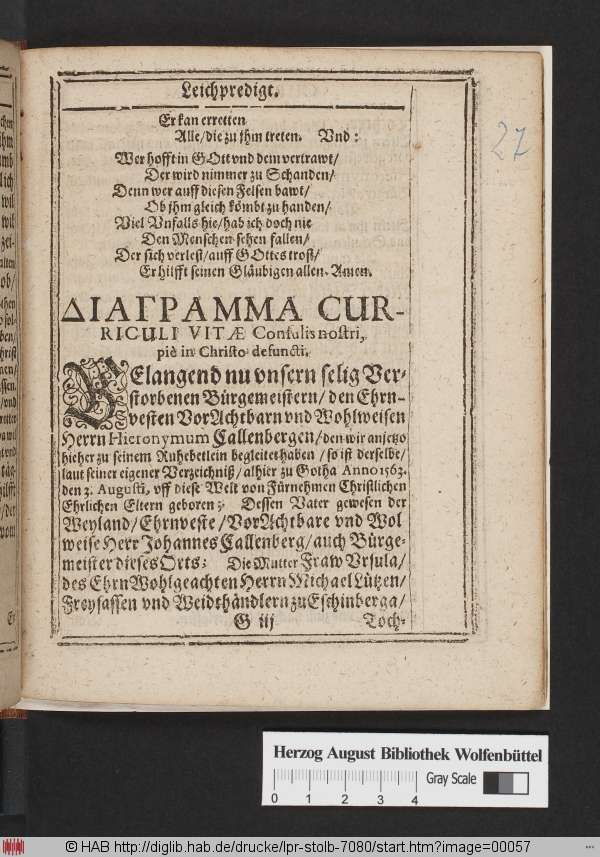 Leichpredigt.
27
Er kan erretten
Alle/die zu jhm treten. Vnd:
Wer hofft in GOtt vnd dem vertrawt/
Der wird nimmer zu Schanden/
Denn wer auff diesen Felsen bawt/
Ob jhm gleich kömbt zu handen/
Viel Vnfalls hie/hab ich doch nie
Den Menschen sehen fallen/
Der sich verlest/auff GOttes trost/
Er hilfft seinen Gläubigen allen. Amen.
ΔΙΑΓΡΑΜΜΑ CUR-
RICULI VITÆ Consulis nostri,
piè in Christo defuncti.
BElangend nu vnsern selig Ver-
storbenen Bürgemeistern/den Ehrn-
vesten VorAchtbarn vnd Wohlweisen
Herrn Hieronymum Callenbergen/den wir anjetzo
hieher zu seinem Ruhebetlein begleitet haben/so ist derselbe/
laut seiner eigener Verzeichniß/alhier zu Gotha Anno 1563.
den 3. Augusti, vff diese Welt von Fürnehmen Christlichen
Ehrlichen Eltern geboren; Dessen Vater gewesen der
Weyland/Ehrnveste/VorAchtbare vnd Wol
weise Herr Johannes Callenberg/auch Bürge-
meister dieses Orts; Die Mutter Fraw Vrsula/
des EhrnWohlgeachten Herrn Michael Lützen/
Freysassen vnd Weidthändlern zu Eschinberga/
G iij Toch-
Herzog August Bibliothek Wolfenbüttel
0 1 2 3 4 Gray Scale
© HAB http://diglib.hab.de/drucke/lpr-stolb-7080/start.htm?image=00057